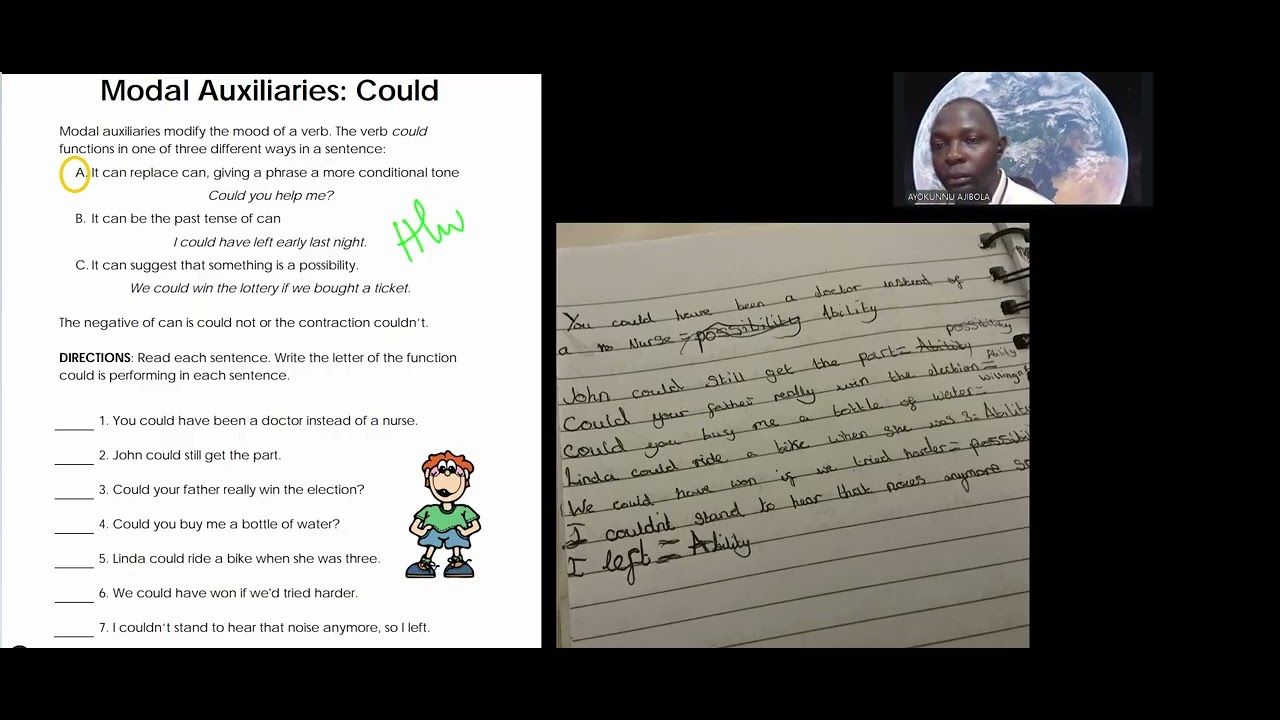 Modal Auxiliaries: Could
Modal auxiliaries modify the mood of a verb. The verb could
functions in one of three different ways in a sentence:
A. It can replace can, giving a phrase a more conditional tone
Could you help me?
B. It can be the past tense of can
I could have left early last night.
C. It can suggest that something is a possibility.
We could win the lottery if we bought a ticket.
The negative of can is could not or the contraction couldn't.
DIRECTIONS: Read each sentence. Write the letter of the function
could is performing in each sentence.
_____ 1. You could have been a doctor instead of a nurse.
_____ 2. John could still get the part.
_____ 3. Could your father really win the election?
_____ 4. Could you buy me a bottle of water?
_____ 5. Linda could ride a bike when she was three.
_____ 6. We could have won if we'd tried harder.
_____ 7. I couldn't stand to hear that noise anymore, so I left.
AYOKUNNU AJIBOLA
You could have been a doctor instead of
a Nurse = possibility Ability
possibility
John could still get the part = Ability
Ability
Could your father really win the election =
Could you buy me a bottle of water =
Linda could ride a bike when she was 3 = Ability
We could have won if we tried harder =
I couldn't stand to hear that noies anymore so
I left = Ability